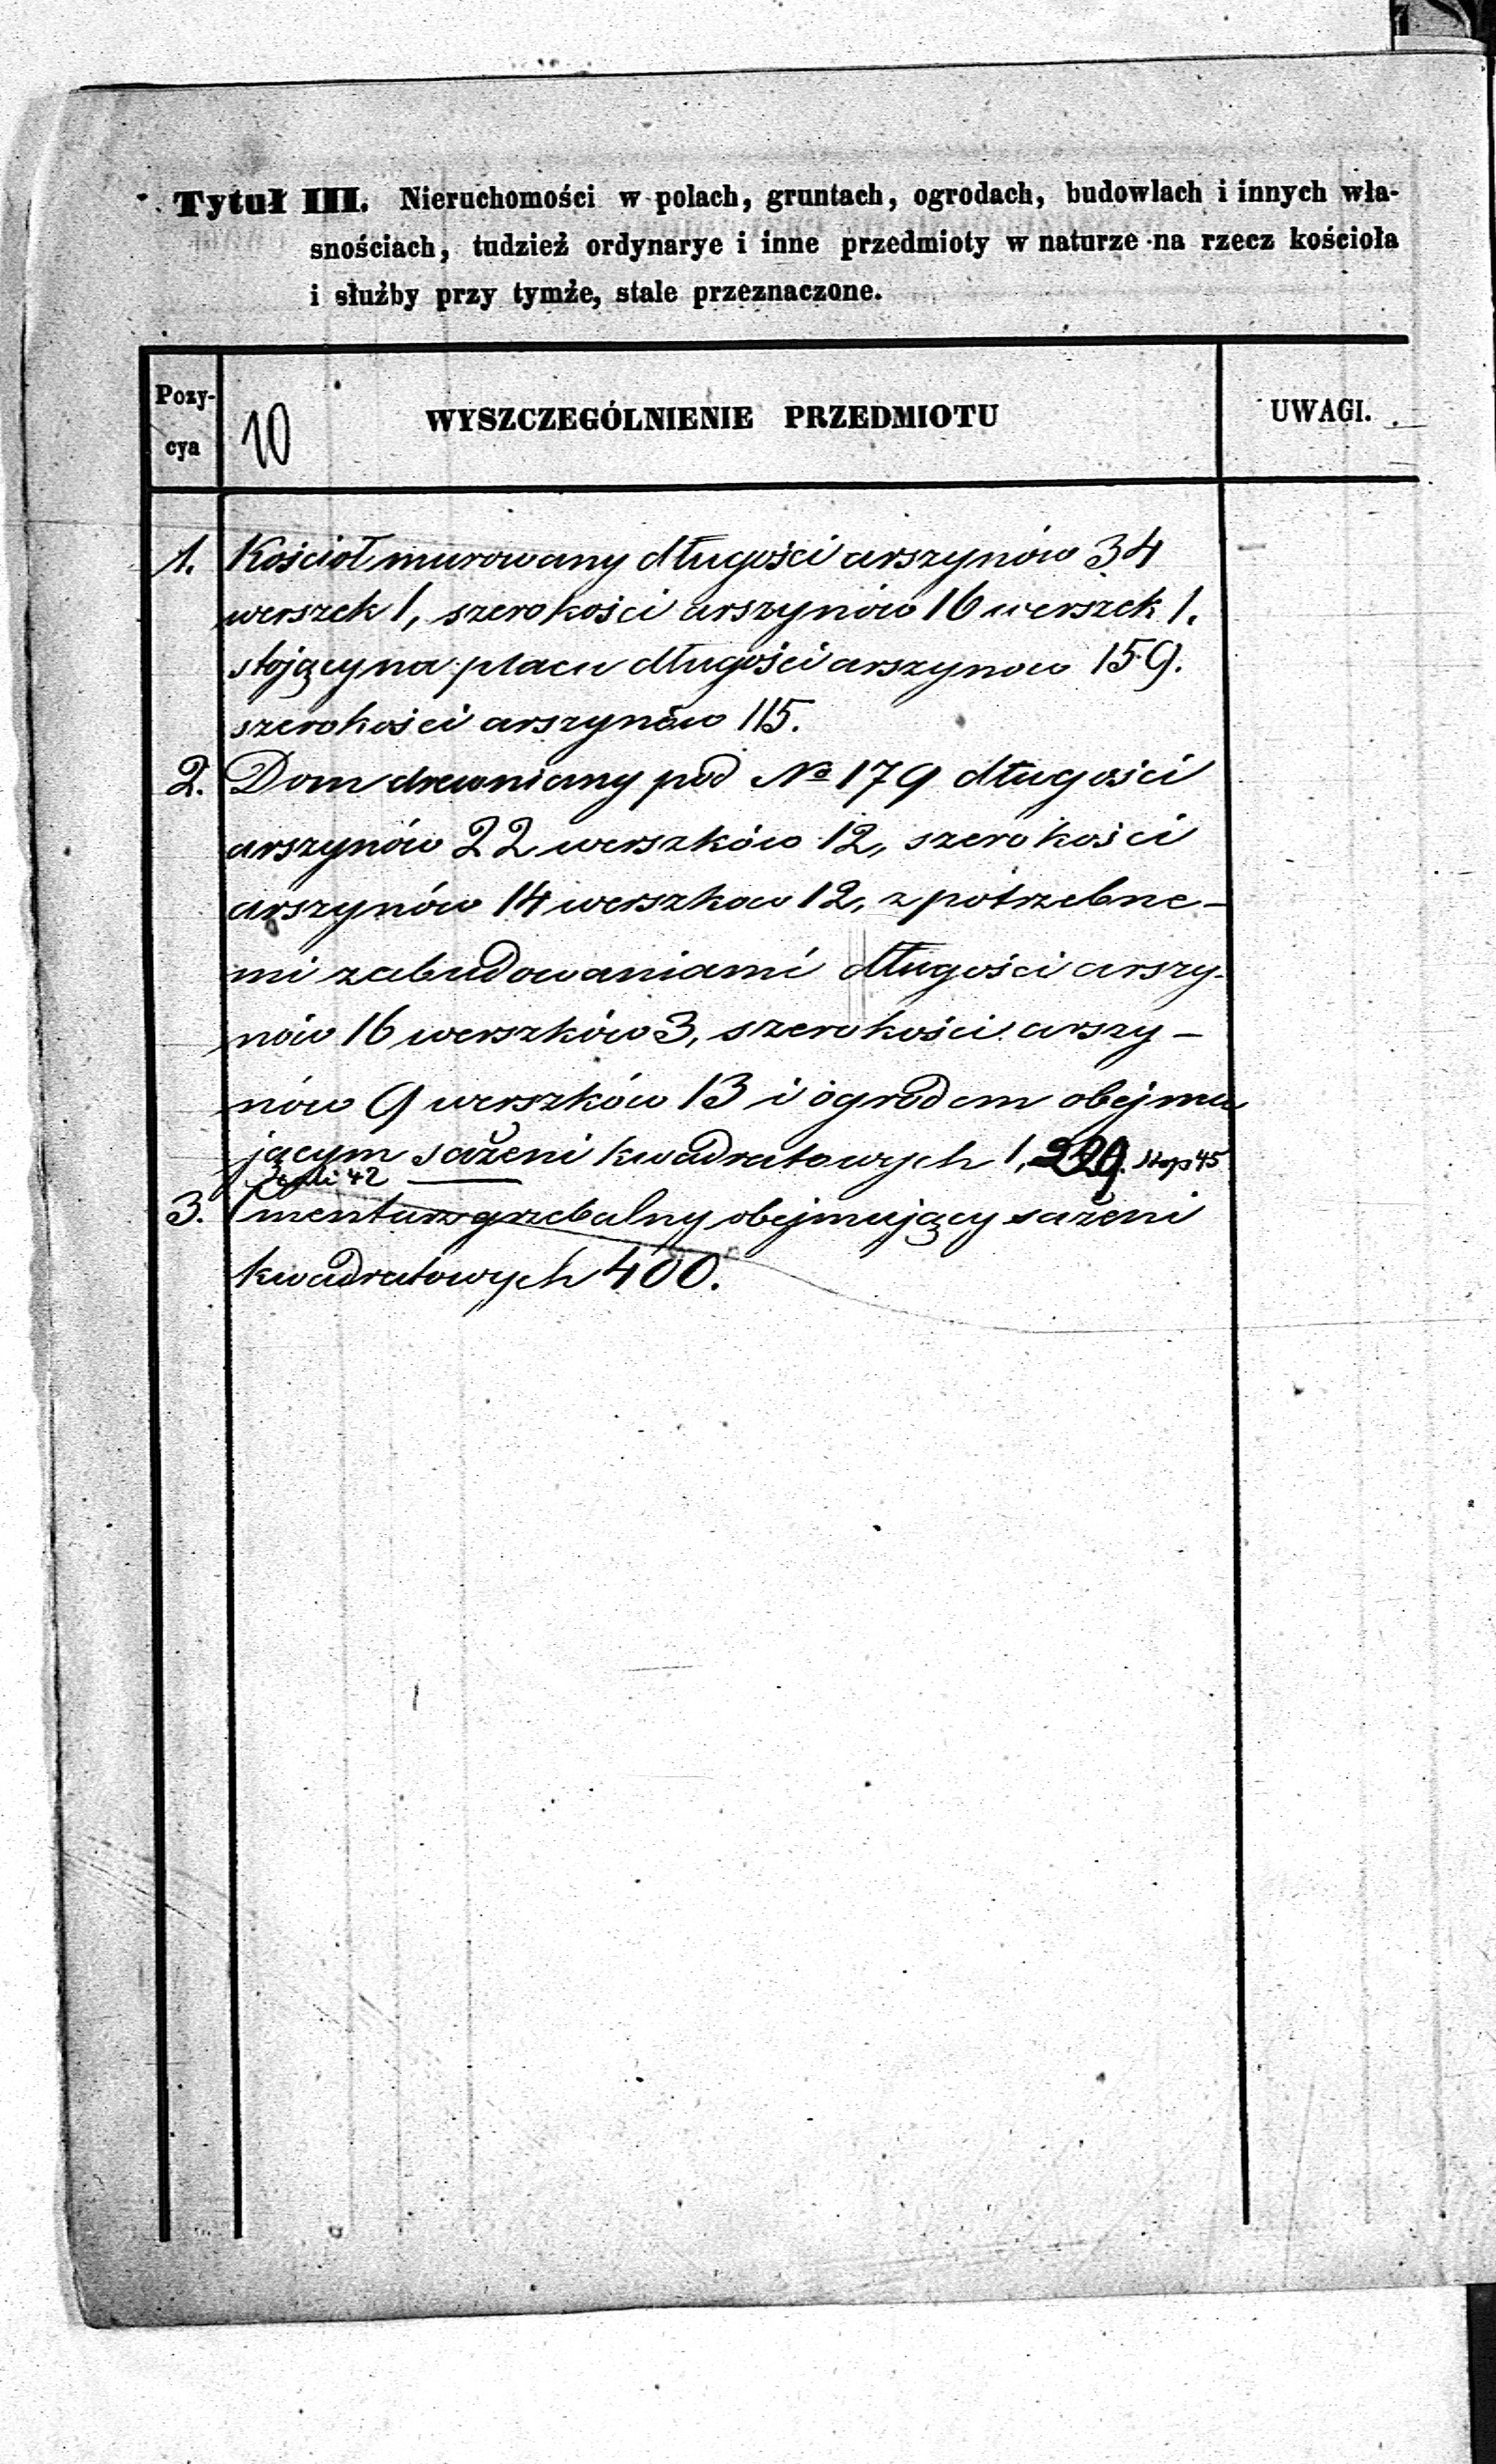 Tytuł III. Nieruchomości w polach, gruntach, ogrodach, budowlach i innych wła-
snościach, tudzież ordynarye i inne przedmioty w naturze na rzecz kościoła
i służby przy tymże, stale przeznaczone.
Pozy-
cya
10
WYSZCZEGÓLNIENIE PRZEDMIOTU
UWAGI.
1. Kościoł murowany długości arszynów 34
werszek 1, szerokości arszynów 16 werszek 1.
stojący na placu długości arszynow 159.
szerokości arszynów 115.
2. Dom drewniany pod № 179 długości
arszynów 22 werszków 12, szerokości
arszynów 14 werszkow 12, z potrzebne-
mi zabudowaniami długości arszy-
nów 16 werszków 3, szerokości arszy-
nów 9 werszków 13 i ogrodem obejmu
jącym sażeni kwadratowych 1, stop 45
cali 42
3. Cmentarz grzebalny obejmujący sażeni
kwadratowych 400.